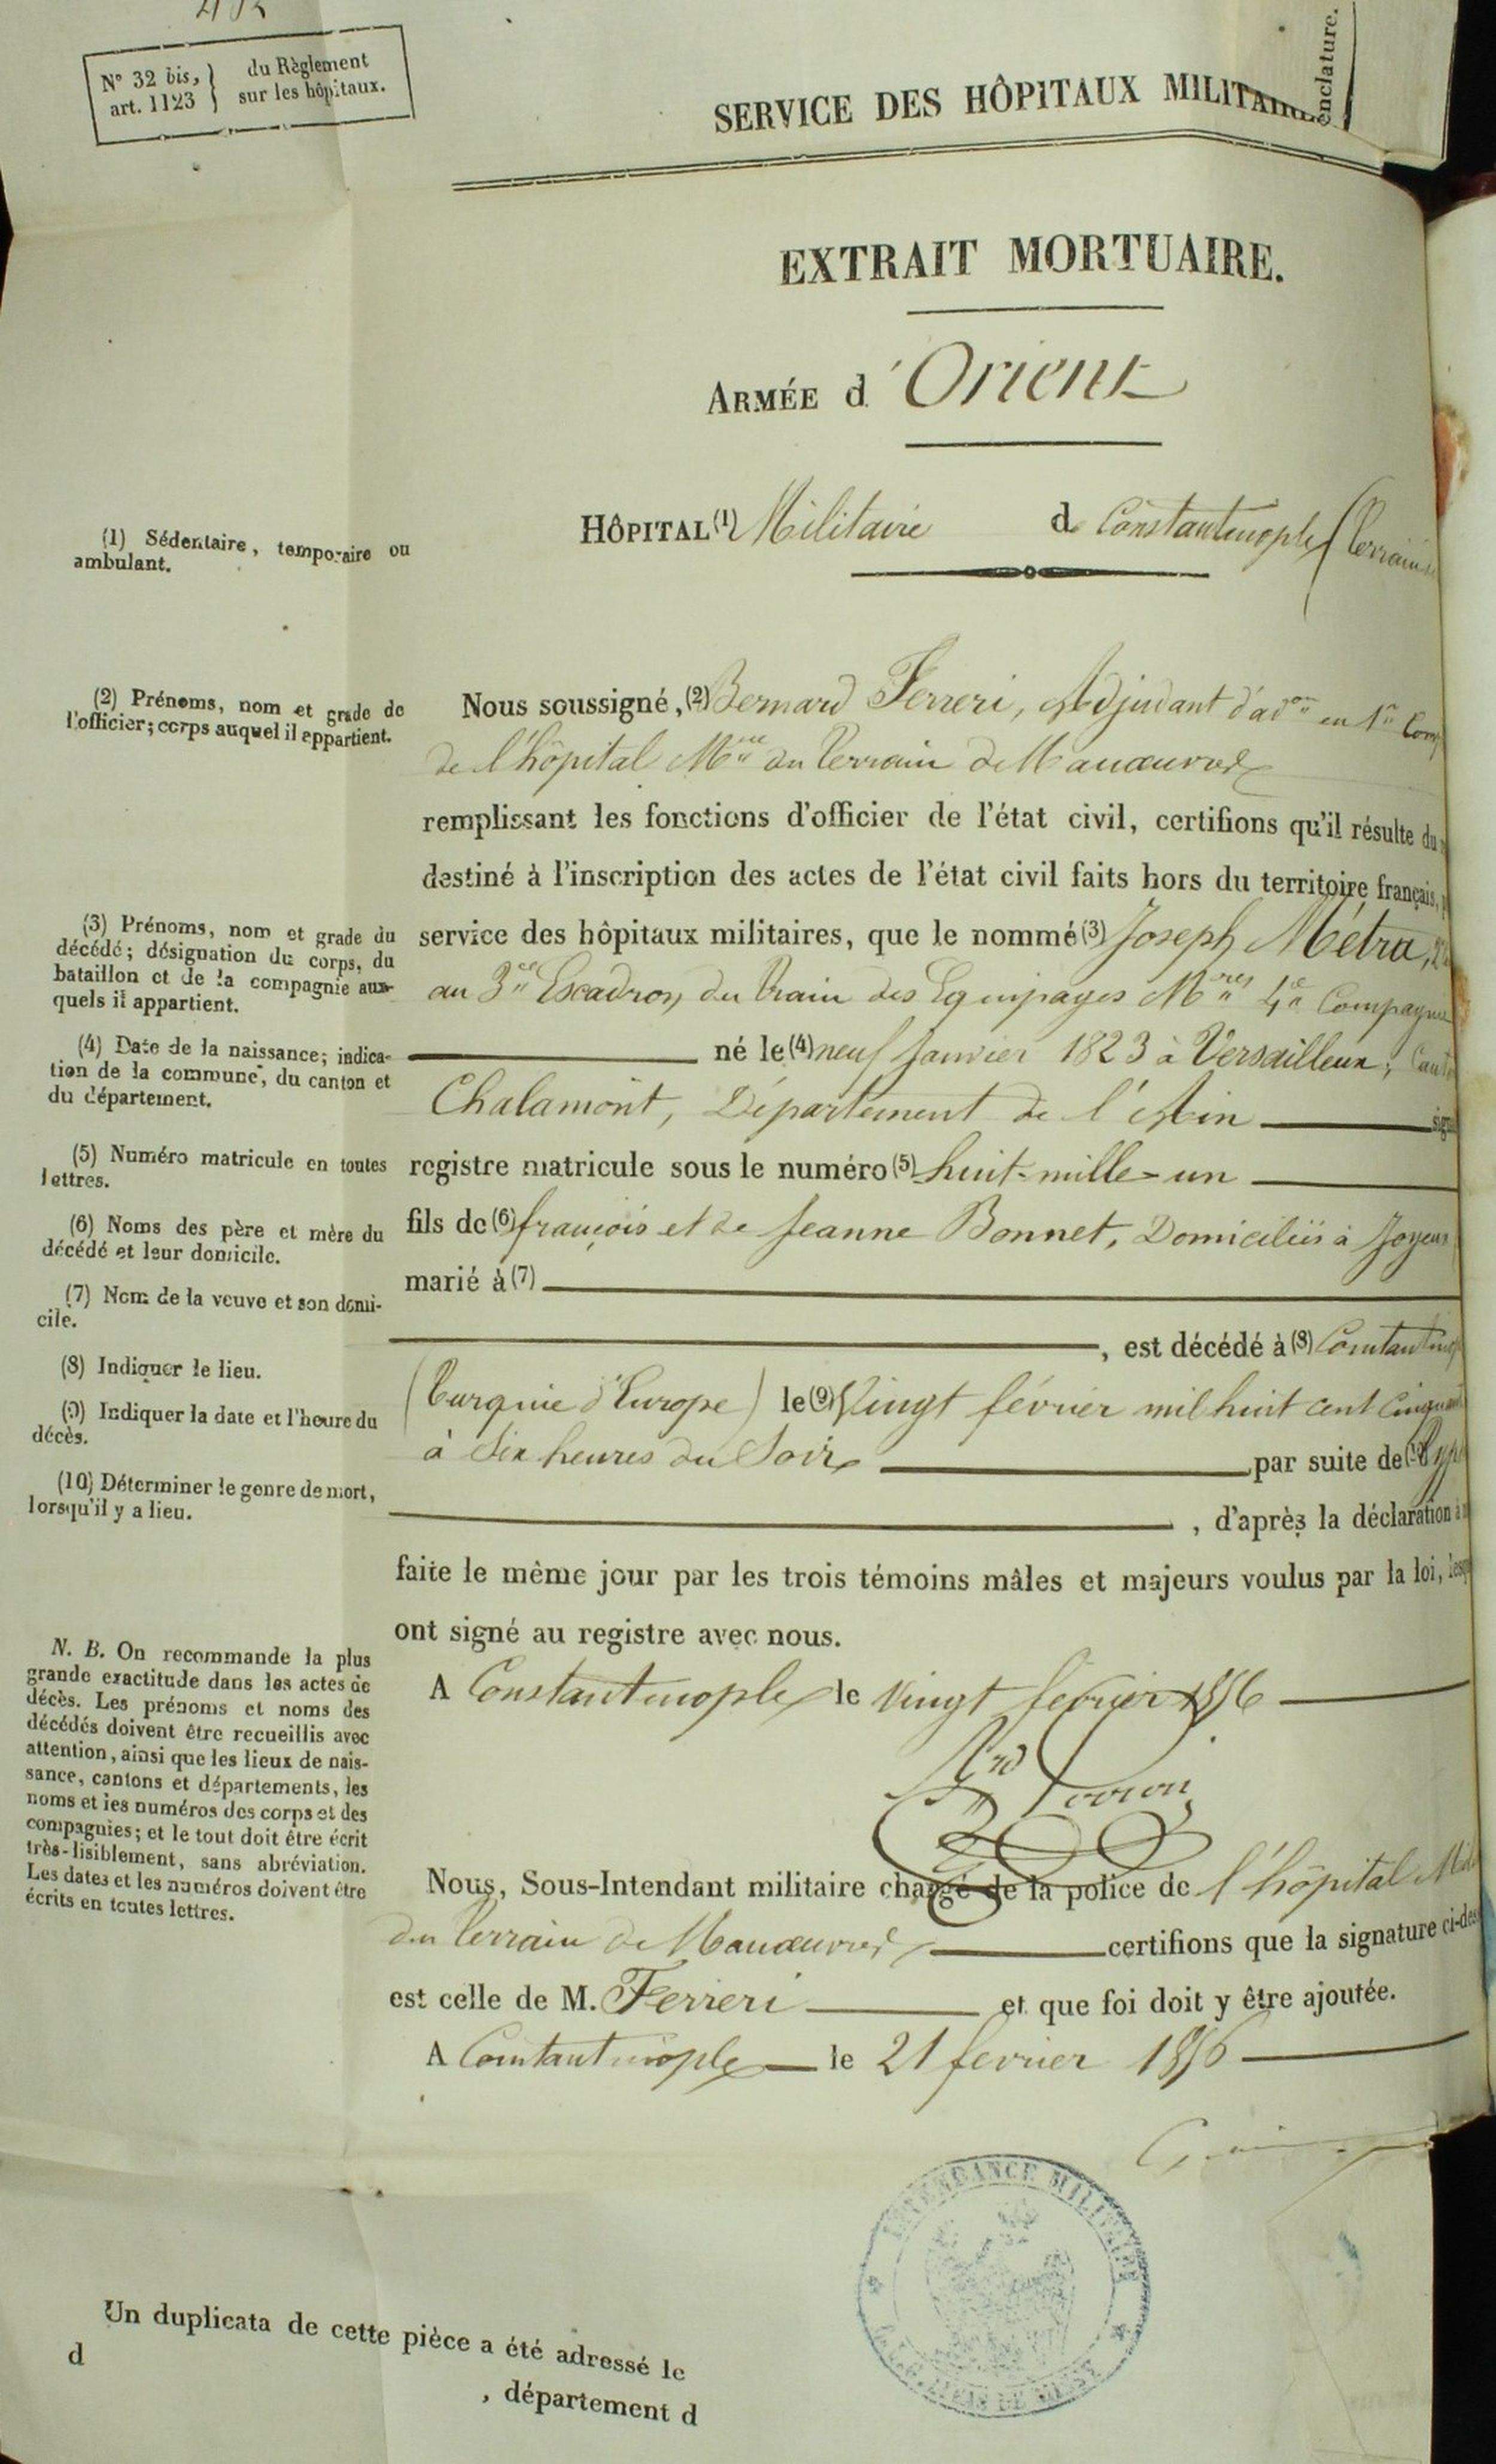 N° 32 bis, art. 1123 } du Règlement sur les hôpitaux.
SERVICE DES HÔPITAUX
enclature.
EXTRAIT MORTUAIRE.
ARMÉE d'Orient
HÔPITAL (1) Militaire de Constantinople (Terrain
(1) Sédentaire, temporaire ou
ambulant.
(2) Prénoms, nom et grade de
l'officier; corps auquel il appartient.
Nous soussigné, (2) Bernard Ferreri, Adjudant d'adon en 1er
de l'hôpital Mre du Terrain de Manœuvres
remplissant les fonctions d'officier de l'état civil, certifions qu'il résulte du
destiné à l'inscription des actes de l'état civil faits hors du territoire français,
(3) Prénoms, nom et grade du
décédé; désignation du corps, du
bataillon et de la compagnie aux-
quels il appartient.
service des hôpitaux militaires, que le nommé (3) Joseph Métra,
au 3e Escadron du Train des Equipages Mres 4e Compagnie
(4) Date de la naissance; indica-
tion de la commune, du canton et
du département.
né le (4) neuf Janvier 1823 à Versailleux,
Chalamont, Département de l'Ain
(5) Numéro matricule en toutes
lettres.
registre matricule sous le numéro (5) huit-mille-un
(6) Noms des père et mère du
décédé et leur domicile.
fils de (6) françois et de Jeanne Bonnet, Domiciliés à
(7) Nom de la veuve et son domi-
cile.
marié à (7)
(8) Indiquer le lieu.
, est décédé à (8)
(9) Indiquer la date et l'heure du
décès.
(Turquie d'Europe) le (9) Vingt février mil huit cent
à Six heures du Soir par suite de (10)
(10) Déterminer le genre de mort,
lorsqu'il y a lieu.
, d'après la déclaration
faite le même jour par les trois témoins mâles et majeurs voulus par la loi,
ont signé au registre avec nous.
N. B. On recommande la plus
grande exactitude dans les actes de
décès. Les prénoms et noms des
décédés doivent être recueillis avec
attention, ainsi que les lieux de nais-
sance, cantons et départements, les
noms et les numéros des corps et des
compagnies; et le tout doit être écrit
très-lisiblement, sans abréviation.
Les dates et les numéros doivent être
écrits en toutes lettres.
A Constantinople le Vingt fevrier 1856
Nous, Sous-Intendant militaire chargé de la police de l'hôpital
du Terrain de Manœuvres certifions que la signature
est celle de M. Ferreri et que foi doit y être ajoutée.
A Constantinople le 21 fevrier 1856
INTENDANCE MILITAIRE
Un duplicata de cette pièce a été adressé le
d
, département d